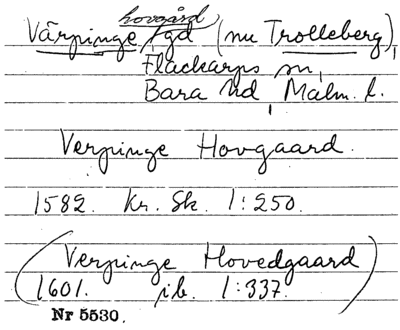 hovgård
Värpinge gd (nu Trolleberg),
Flackarps sn,
Bara hd, Malm. l.
Verpinge Hovgaard.
1582. Kr. Sk. 1:250.
(Verpinge Hovedgaard)
1601. ib. 1:337.
Nr 5530.